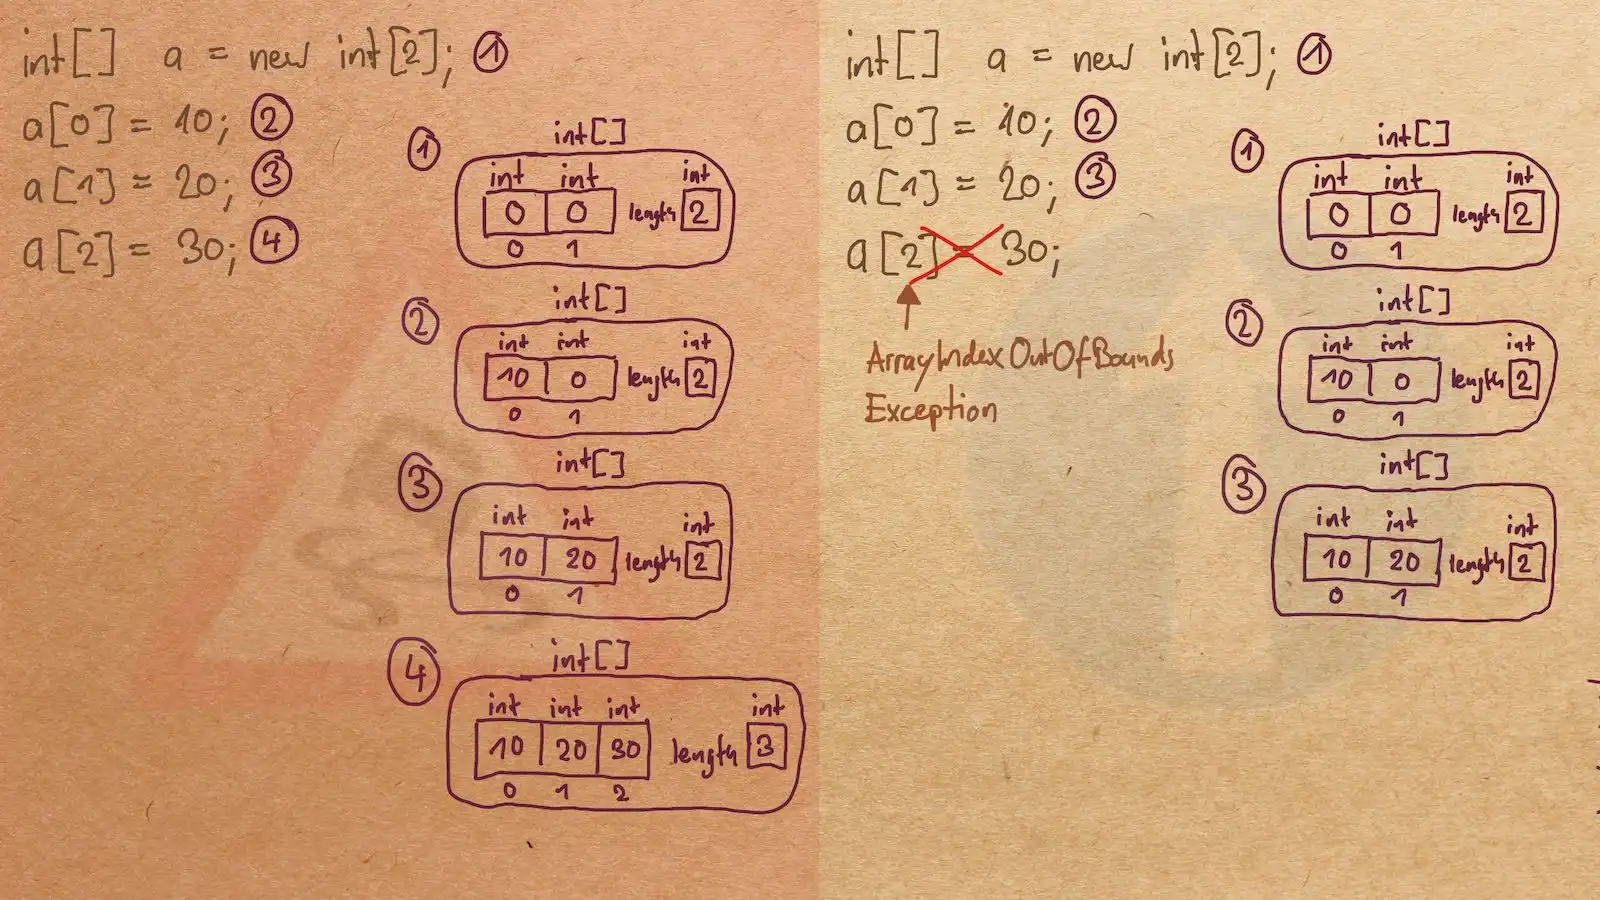 int[] a = new int[2]; ①
a[0] = 10; ②
a[1] = 20; ③
a[2] = 30; ④
① int[]
int int int
0 0 length 2
0 1
② int[]
int int int
10 0 length 2
0 1
③ int[]
int int int
10 20 length 2
0 1
④ int[]
int int int int
10 20 30 length 3
0 1 2
int[] a = new int[2]; ①
a[0] = 10; ②
a[1] = 20; ③
a[2] = 30;
ArrayIndexOutOfBounds
Exception
① int[]
int int int
0 0 length 2
0 1
② int[]
int int int
10 0 length 2
0 1
③ int[]
int int int
10 20 length 2
0 1